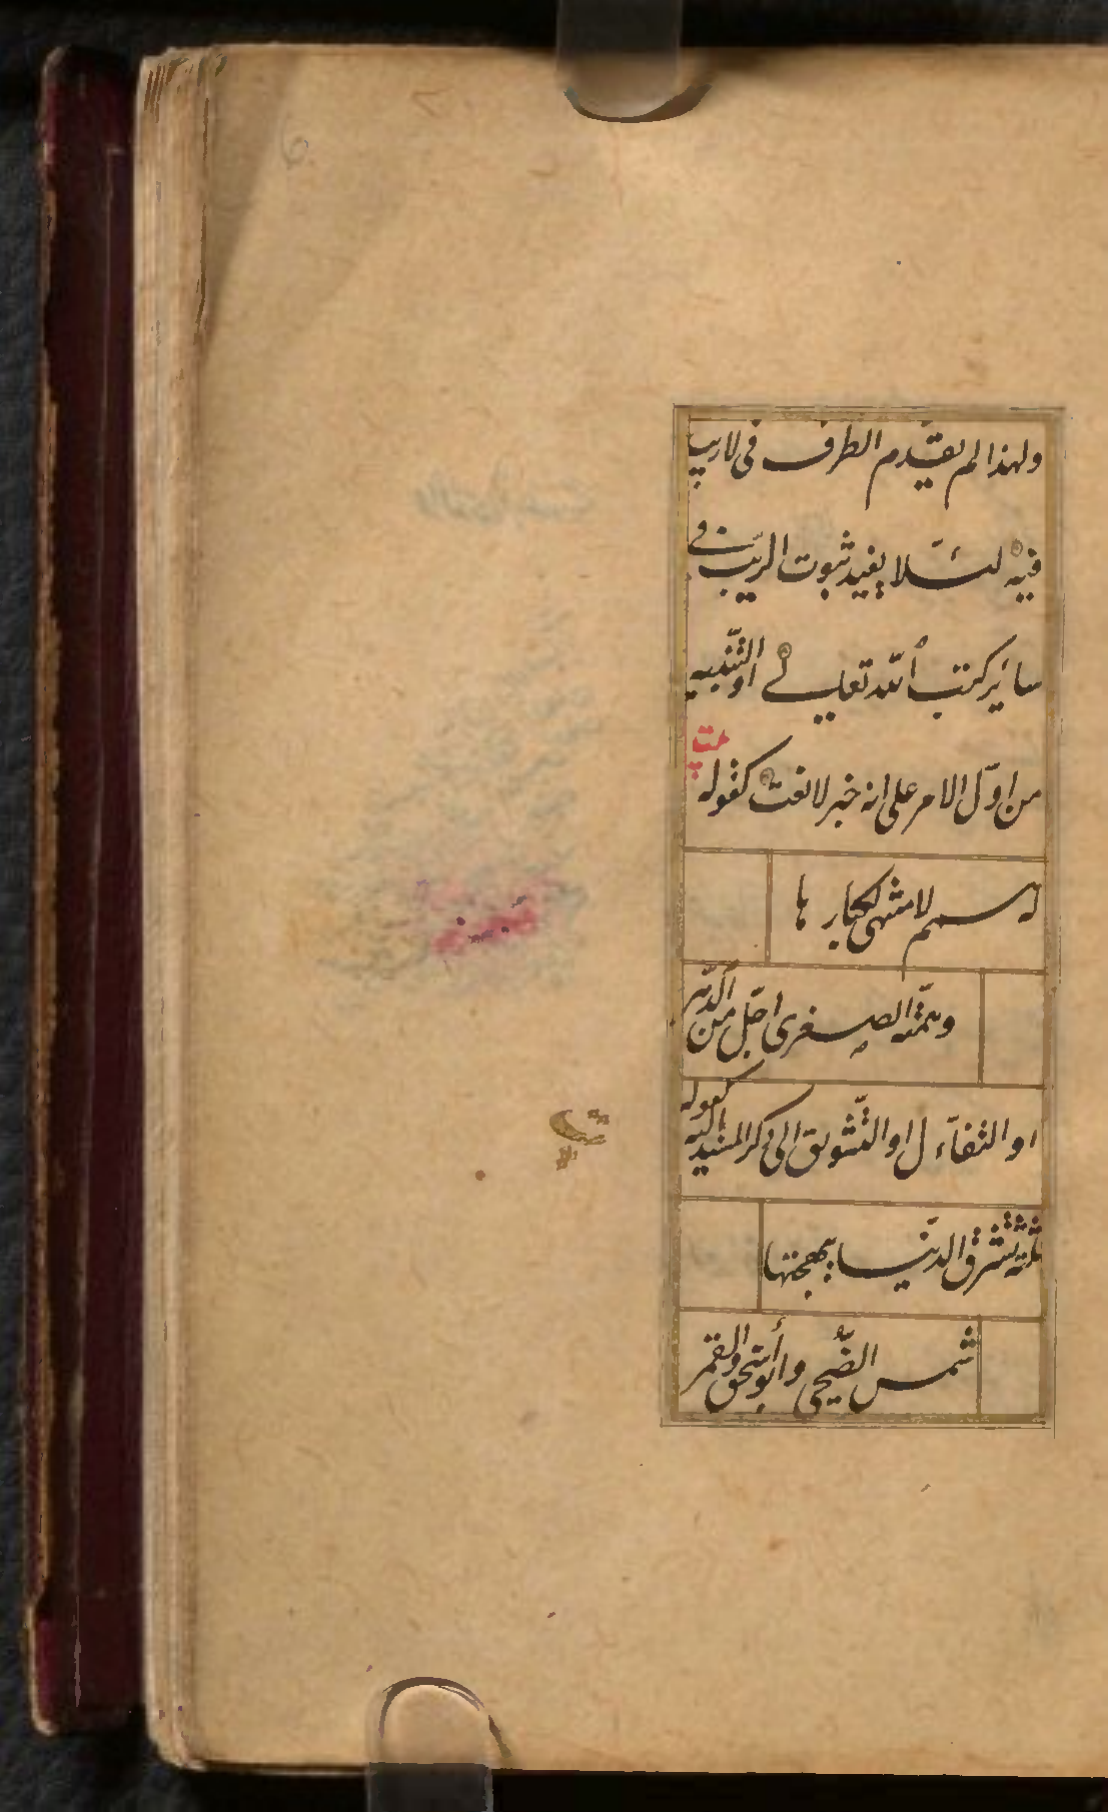 ولهذا لم يقدم الظرف فى لا ريب
فيه لئلا يفيد ثبوت الريب فى
سائر كتب الله تعالى او التنبيه
من اوّل الامر على انه خبر لا نعت كقوله
له همم لا منتهى لكبارها
وهمّته الصغرى اجلّ من الدّهر
او التفاءل او التّشويق الى ذكر المسند اليه كقوله
ثلثة تشرق الدّنيا ببهجتها
شمس الضّحى وابو اسحق والقمر